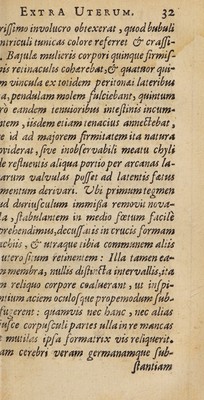 EXTRA UTERUM. 32
rissimo involucro obtexerat, quod bubuli
ntriculi tunicas colore referret & crassi-
. Bajulæ mulieris corpori quinque firmis-
is retinaculis cohærebat, & quatuor qui-
m vincula ex totidem peritonæi lateribus
a, pendulam molem fulciebant, quintum
ro eandem tenuioribus intestinis incum-
ntem, iisdem etiam tenacius annectebat,
e id ad majorem firmitatem ita natura
oviderat, sive inobservabili meatu chyli
de refluentis aliqua portio per arcanas la-
arum valvulas posset ad latentis fœtus
mentum derivari. Ubi primum tegmen
ud duriusculum immissa removit nova-
la, stabulantem in medio fœtum facilè
prehendimus, decussatis in crucis formam
achiis, & utraque tibia communem aliis
utero situm retinentem: Illa tamen ea-
n membra, nullis distincta intervallis, ita
m reliquo corpore coaluerant, ut inspi-
ntium aciem oculosque propemodum sub-
fugerent: quamvis nec hanc, nec alias
jusce corpusculi partes ulla in re mancas
e mutilas ipsa formatrix vis reliquerit.
am cerebri veram germanamque sub-
stantiam